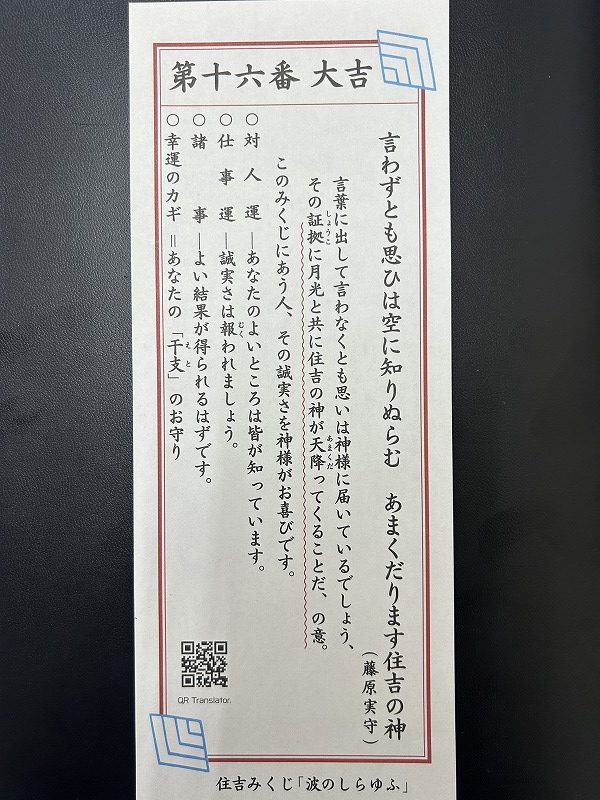 第十六番 大吉
言わずとも思ひは空に知りぬらむ あまくだります住吉の神
(藤原実守)
言葉に出して言わなくとも思いは神様に届いているでしょう、
その証拠に月光と共に住吉の神が天降ってくることだ、の意。
しょうこ
あまくだ
このみくじにあう人、その誠実さを神様がお喜びです。
○対人運―あなたのよいところは皆が知っています。
○仕事運―誠実さは報われましょう。
むく
○諸事―よい結果が得られるはずです。
○幸運のカギ=あなたの「干支」のお守り
えと
QR Translator.
住吉みくじ「波のしらゆふ」